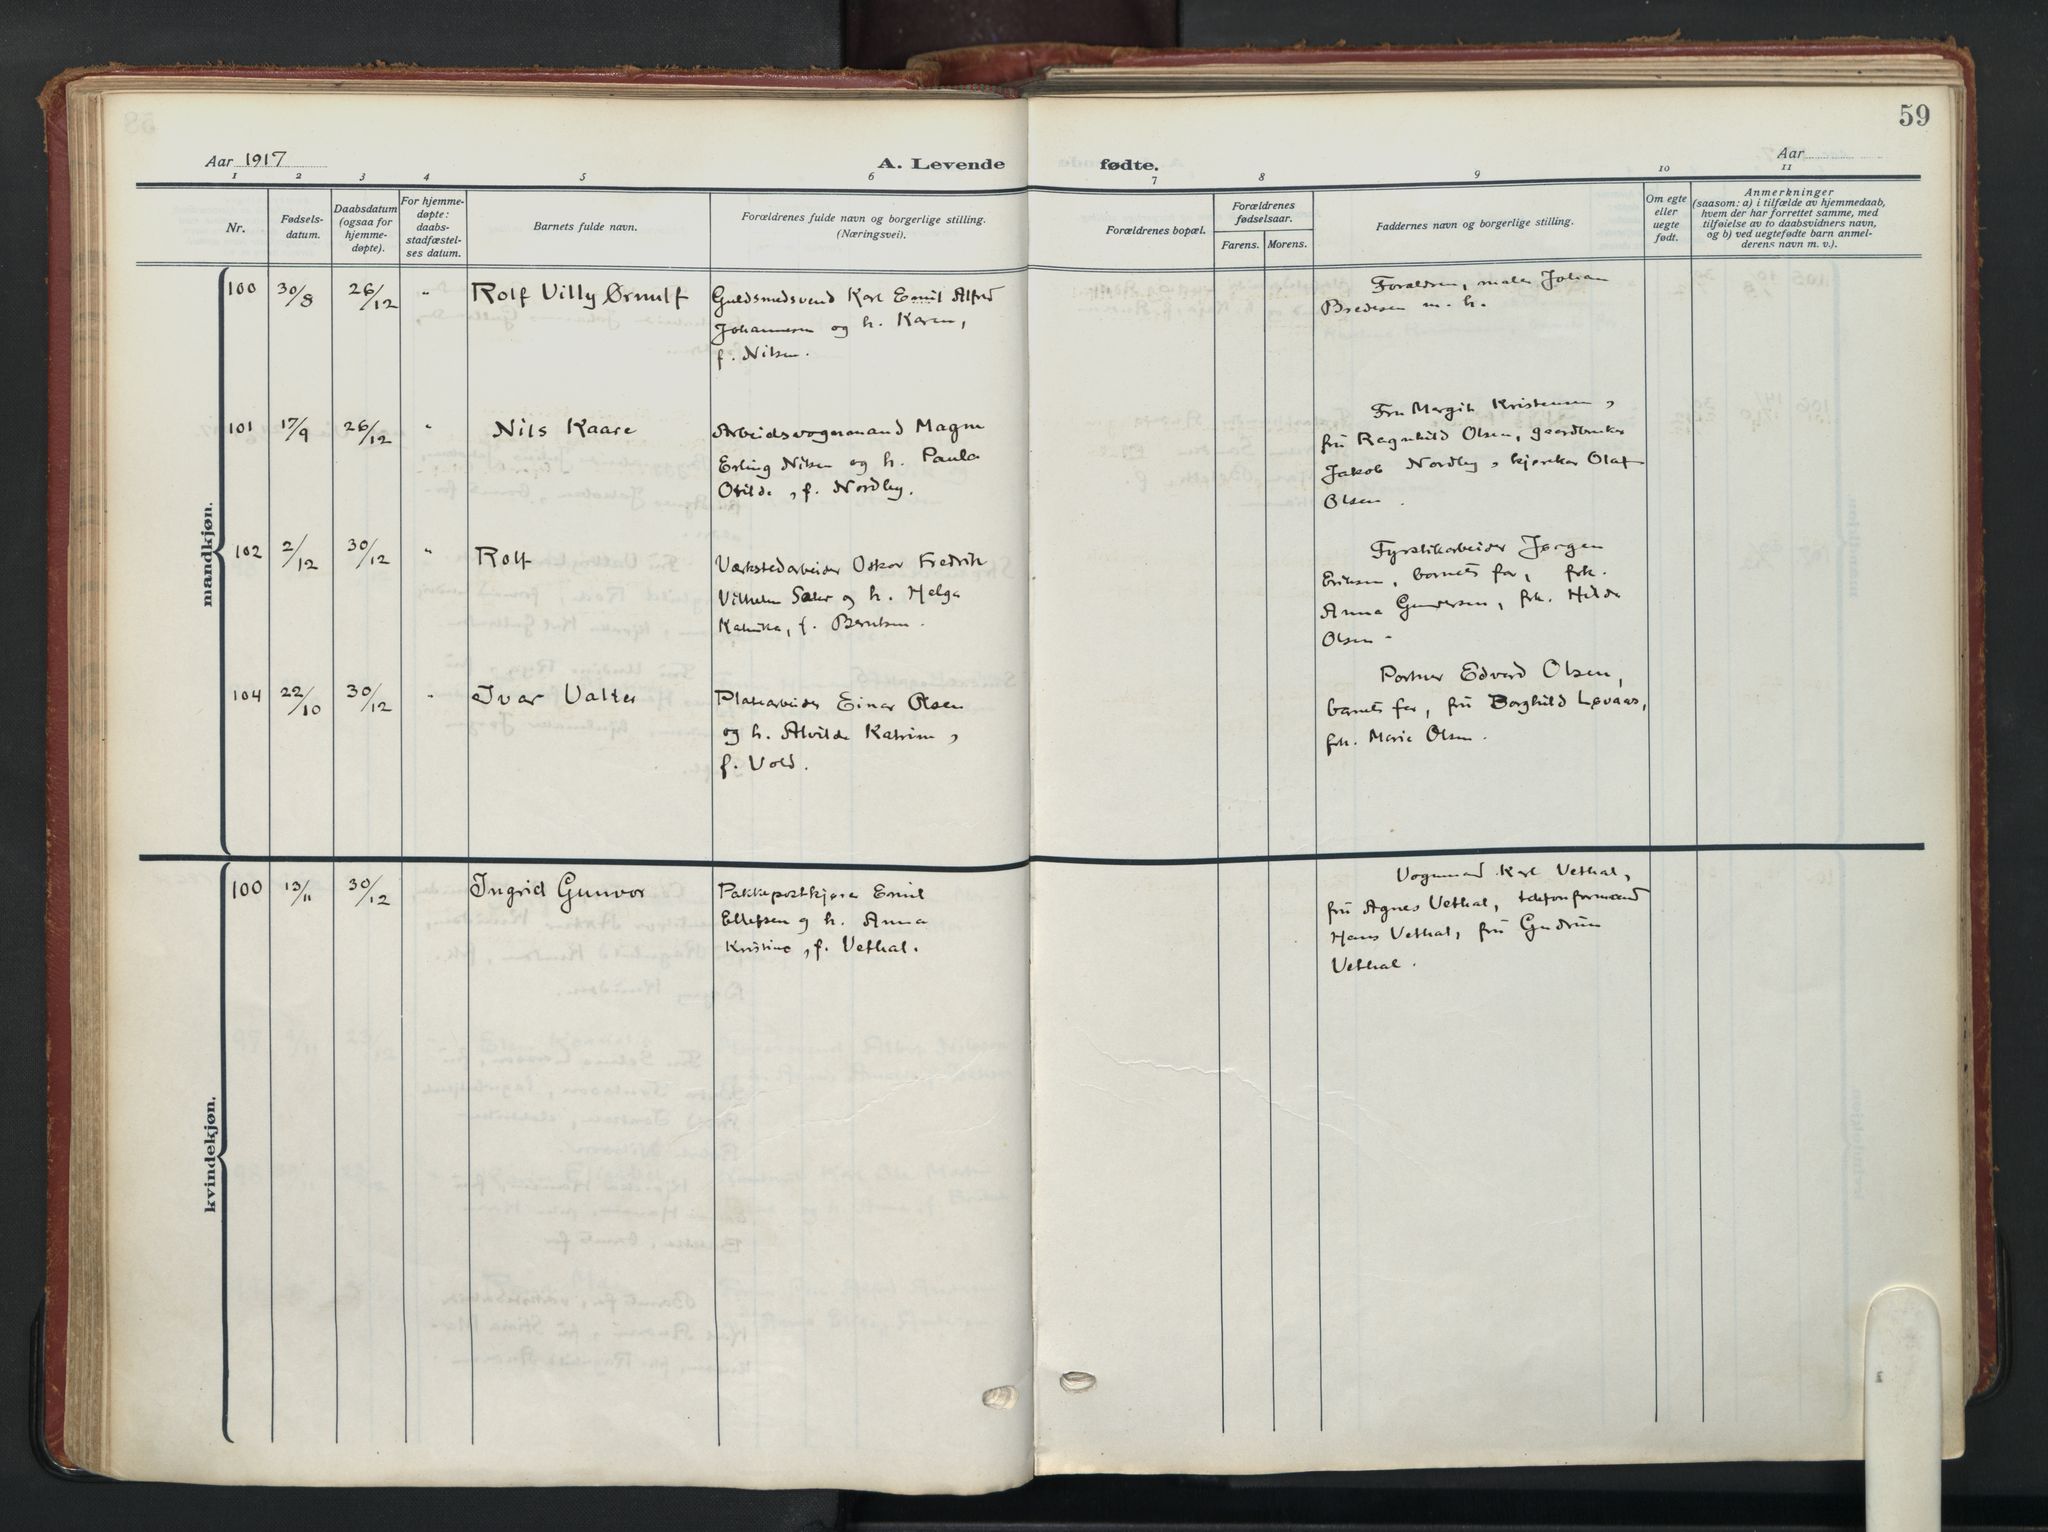 59
Aar 1917
A. Levende fødte.
Aar
1 2 3 4 5 6 7 8 9 10 11
Nr.
Fødsels-
datum.
Daabsdatum
(ogsaa for
hjemme-
døpte).
For hjemme-
døpte:
daabs-
stadfæstel-
ses datum.
Barnets fulde navn.
Forældrenes fulde navn og borgerlige stilling.
(Næringsvei).
Forældrenes bopæl.
Forældrenes
fødselsaar.
Farens. Morens.
Faddernes navn og borgerlige stilling.
Om egte
eller
uegte
født.
Anmerkninger
(saasom: a) i tilfælde av hjemmedaab,
hvem der har forrettet samme, med
tilføielse av to daabsvidners navn,
og b) ved uegtefødte barn anmel-
derens navn m. v.).
mandkjøn.
100 30/8 26/12 " Rolf Villy Ørnulf
Guldsmedsvend Karl Emil Alfred
Johannesen og h. Karen,
f. Nilsen.
Forældren, maler Johan
Bredesen m. h.
101 17/9 26/12 " Nils Kaare
Arbeidsvognmand Magne
Erling Nilsen og h. Paula
Otilde, f. Nordby.
Fru Margit Kristensen,
fru Ragnhild Olsen, gaardbruker
Jakob Nordby, kjørekar Olaf
Olsen.
102 2/12 30/12 " Rolf
Værkstedarbeider Oskar Fredrik
Vilhelm Sæter og h. Helga
Katrika, f. Berntsen.
Fyrstikarbeider Jørgen
Eriksen, barnets far, frk.
Anna Gundersen, frk. Hilda
Olsen.
104 22/10 30/12 " Ivar Valter
Platearbeider Einar Olsen
og h. Alvilde Katrine,
f. Vold.
Portner Edvard Olsen,
barnets far, fru Borghild Løvaas,
frk. Marie Olsen.
kvindekjøn.
100 13/11 30/12 Ingrid Gunvor
Pakkepostkjører Emil
Ellefsen og h. Anna
Kristine, f. Vethal.
Vognmand Karl Vethal,
fru Agnes Vethal, telefonformand
Hans Vethal, fru Gudrun
Vethal.